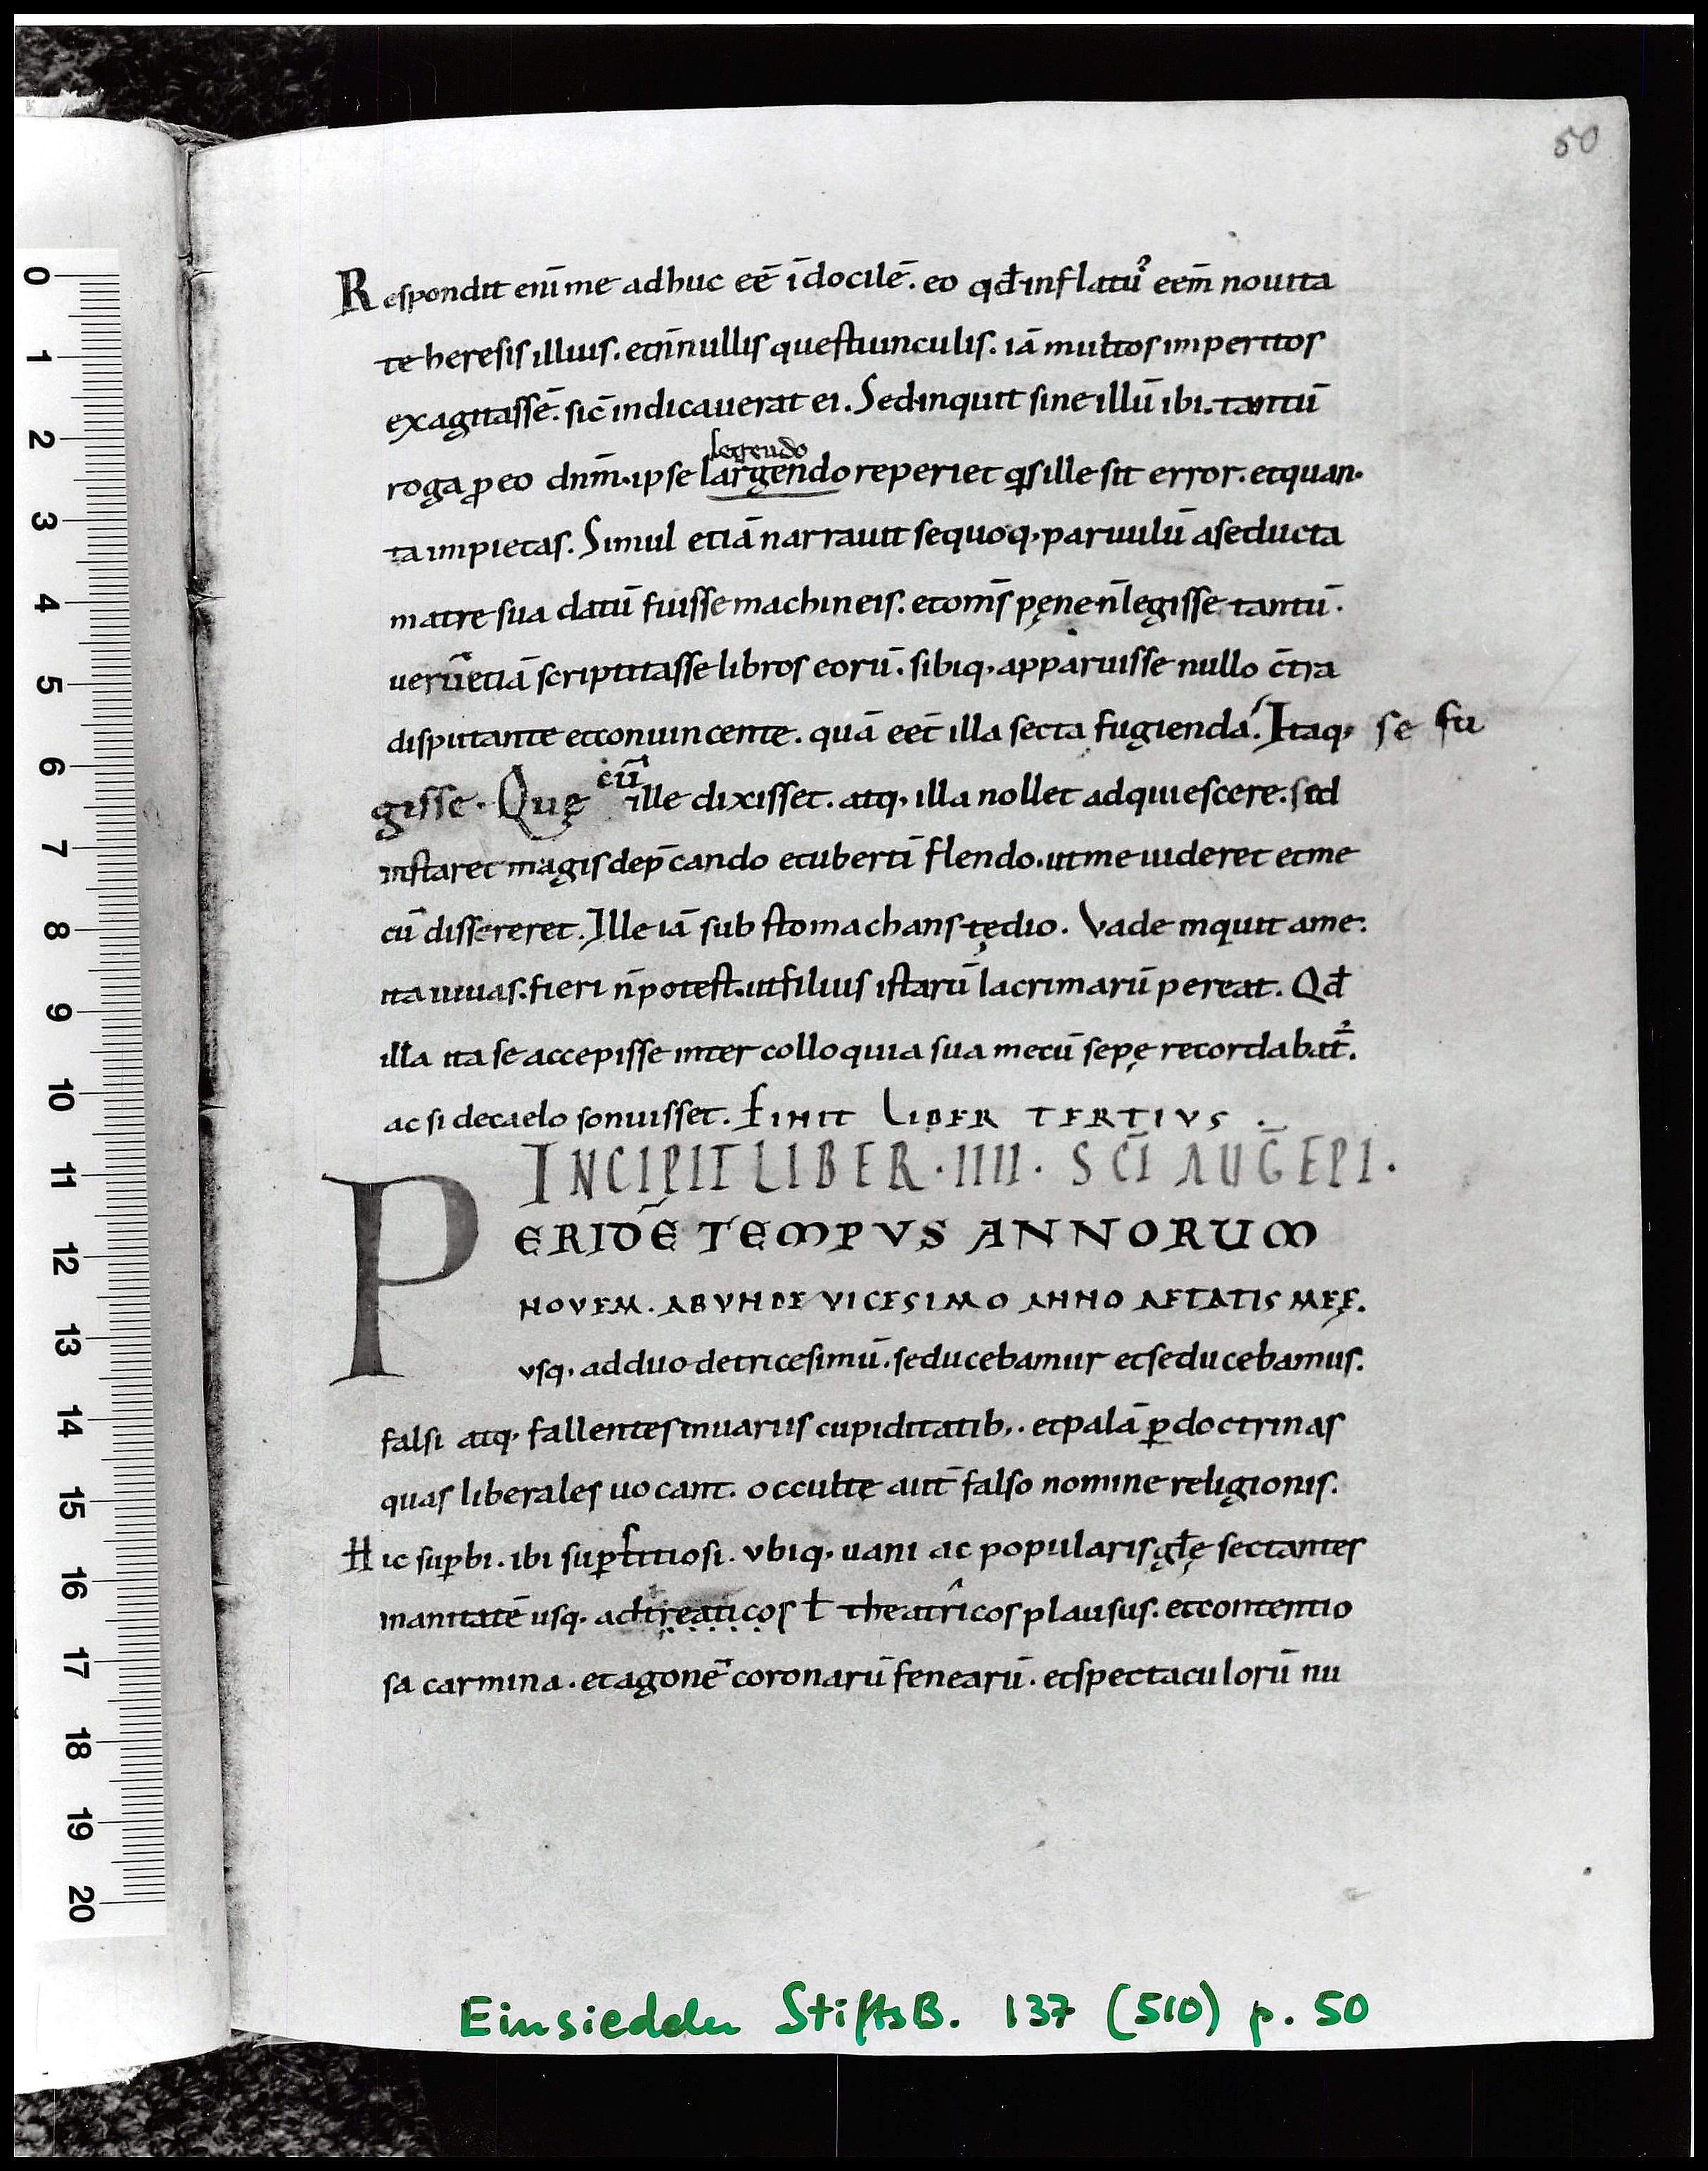 50
Respondit eni̅ me adhuc ee̅ i̅docile̅. eo qđ inflatuʾ eem̅ nouita
te heresis illius. et n̅nullis questiunculis. ia̅ multos imperitos
exagitasse̅. sic̅ indicauerat ei. Sed inquit sine illu̅ ibi. tantu̅
legendo
roga ꝓ eo dnm̅. ipse largendo reperiet qs ille sit error. et quan
ta impietas. Simul etia̅ narrauit se quoq. paruulu̅ a seducta
matre sua datu̅ fuisse machineis. et oms̅ pęne n̅ legisse tantu̅.
ueru̅ etia̅ scriptitasse libros eoru̅. sibiq. apparuisse nullo c̅tra
disputante et conuincente. qua̅ eet̅ illa secta fugienda. Itaq. se fu
cu̅
gisse. Quę ille dixisset. atq. illa nollet adquiescere. sed
instaret magis dep̅cando et uberti̅ flendo. ut me uideret et me
cu̅ dissereret. Ille ia̅ substomachans tędio. Vade inquit a me.
ita uiuas. fieri n̅ potest. ut filius istaru̅ lacrimaru̅ pereat. Qđ
illa ita se accepisse inter colloquia sua mecu̅ sepę recordabat̅ʾ.
ac si de caelo sonuisset. FINIT LIBER TERTIVS.
INCIPIT LIBER . IIII . SCI̅ AUG̅ EPI.
PERIDE̅ TEMPVS ANNORUM
NOVEM. ABVNDE VICESIMO ANNO AETATIS MEĘ.
vsq. ad duodetricesimu̅. seducebamur et seducebamus.
falsi atq. fallentes in uariis cupiditatib,. et pala̅ ꝑ doctrinas
quas liberales uocant. occultę aut̅ falso nomine religionis.
Hic suꝑbi. ibi suꝑstitiosi. vbiq. uani ac popularis głę sectantes
inanitate̅ usq. ad treaticos ł theatricos plausus. et contentio
sa carmina. et agone̅ coronaru̅ fenearu̅. et spectaculoru̅ nu
Einsiedeln StiftsB. 137 (510) p. 50
0
1
2
3
4
5
6
7
8
9
10
11
12
13
14
15
16
17
18
19
20